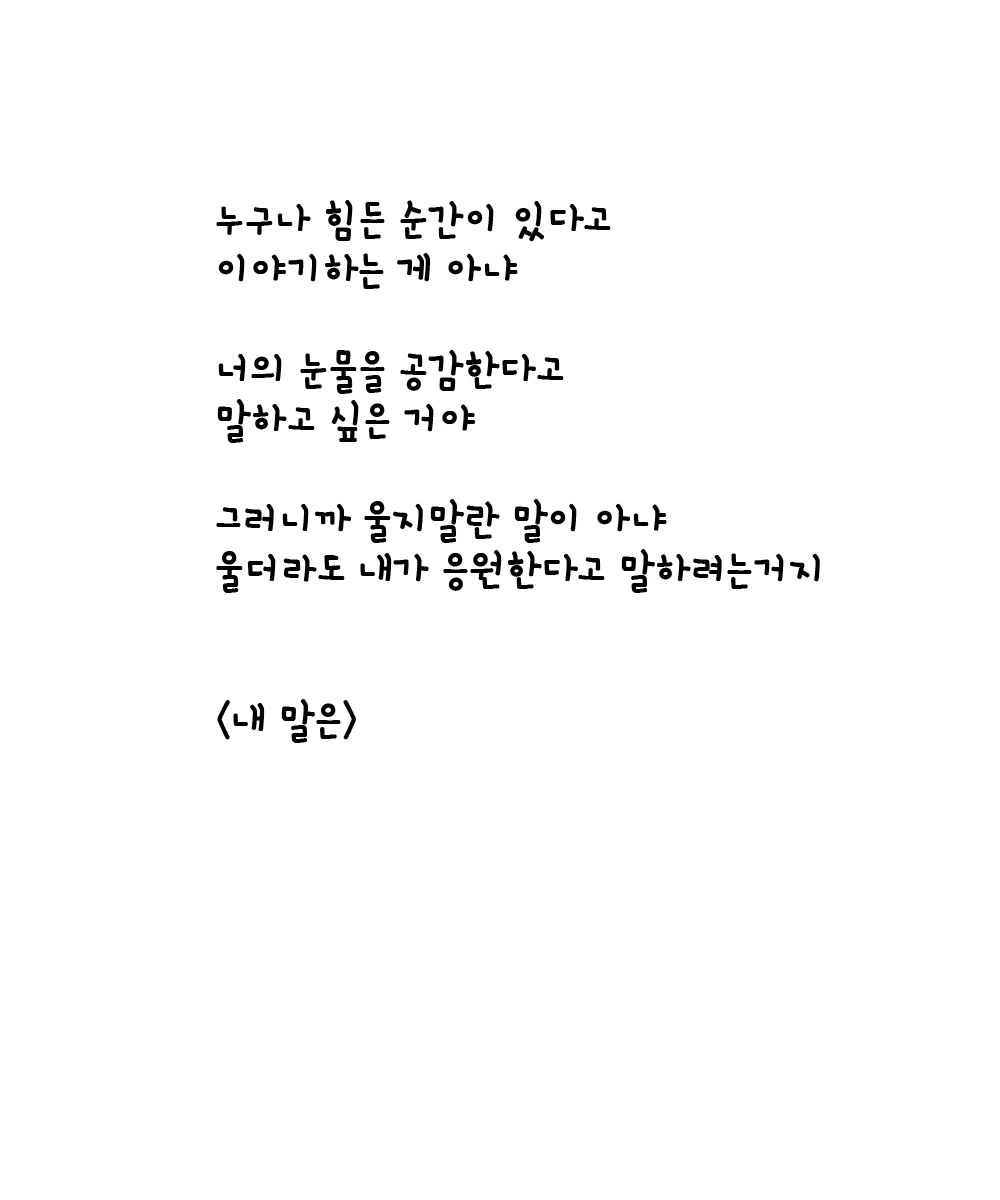 누구나 힘든 순간이 있다고
이야기하는 게 아냐
너의 눈물을 공감한다고
말하고 싶은 거야
그러니까 울지말란 말이 아냐
울더라도 내가 응원한다고 말하려는거지
<내 말은>